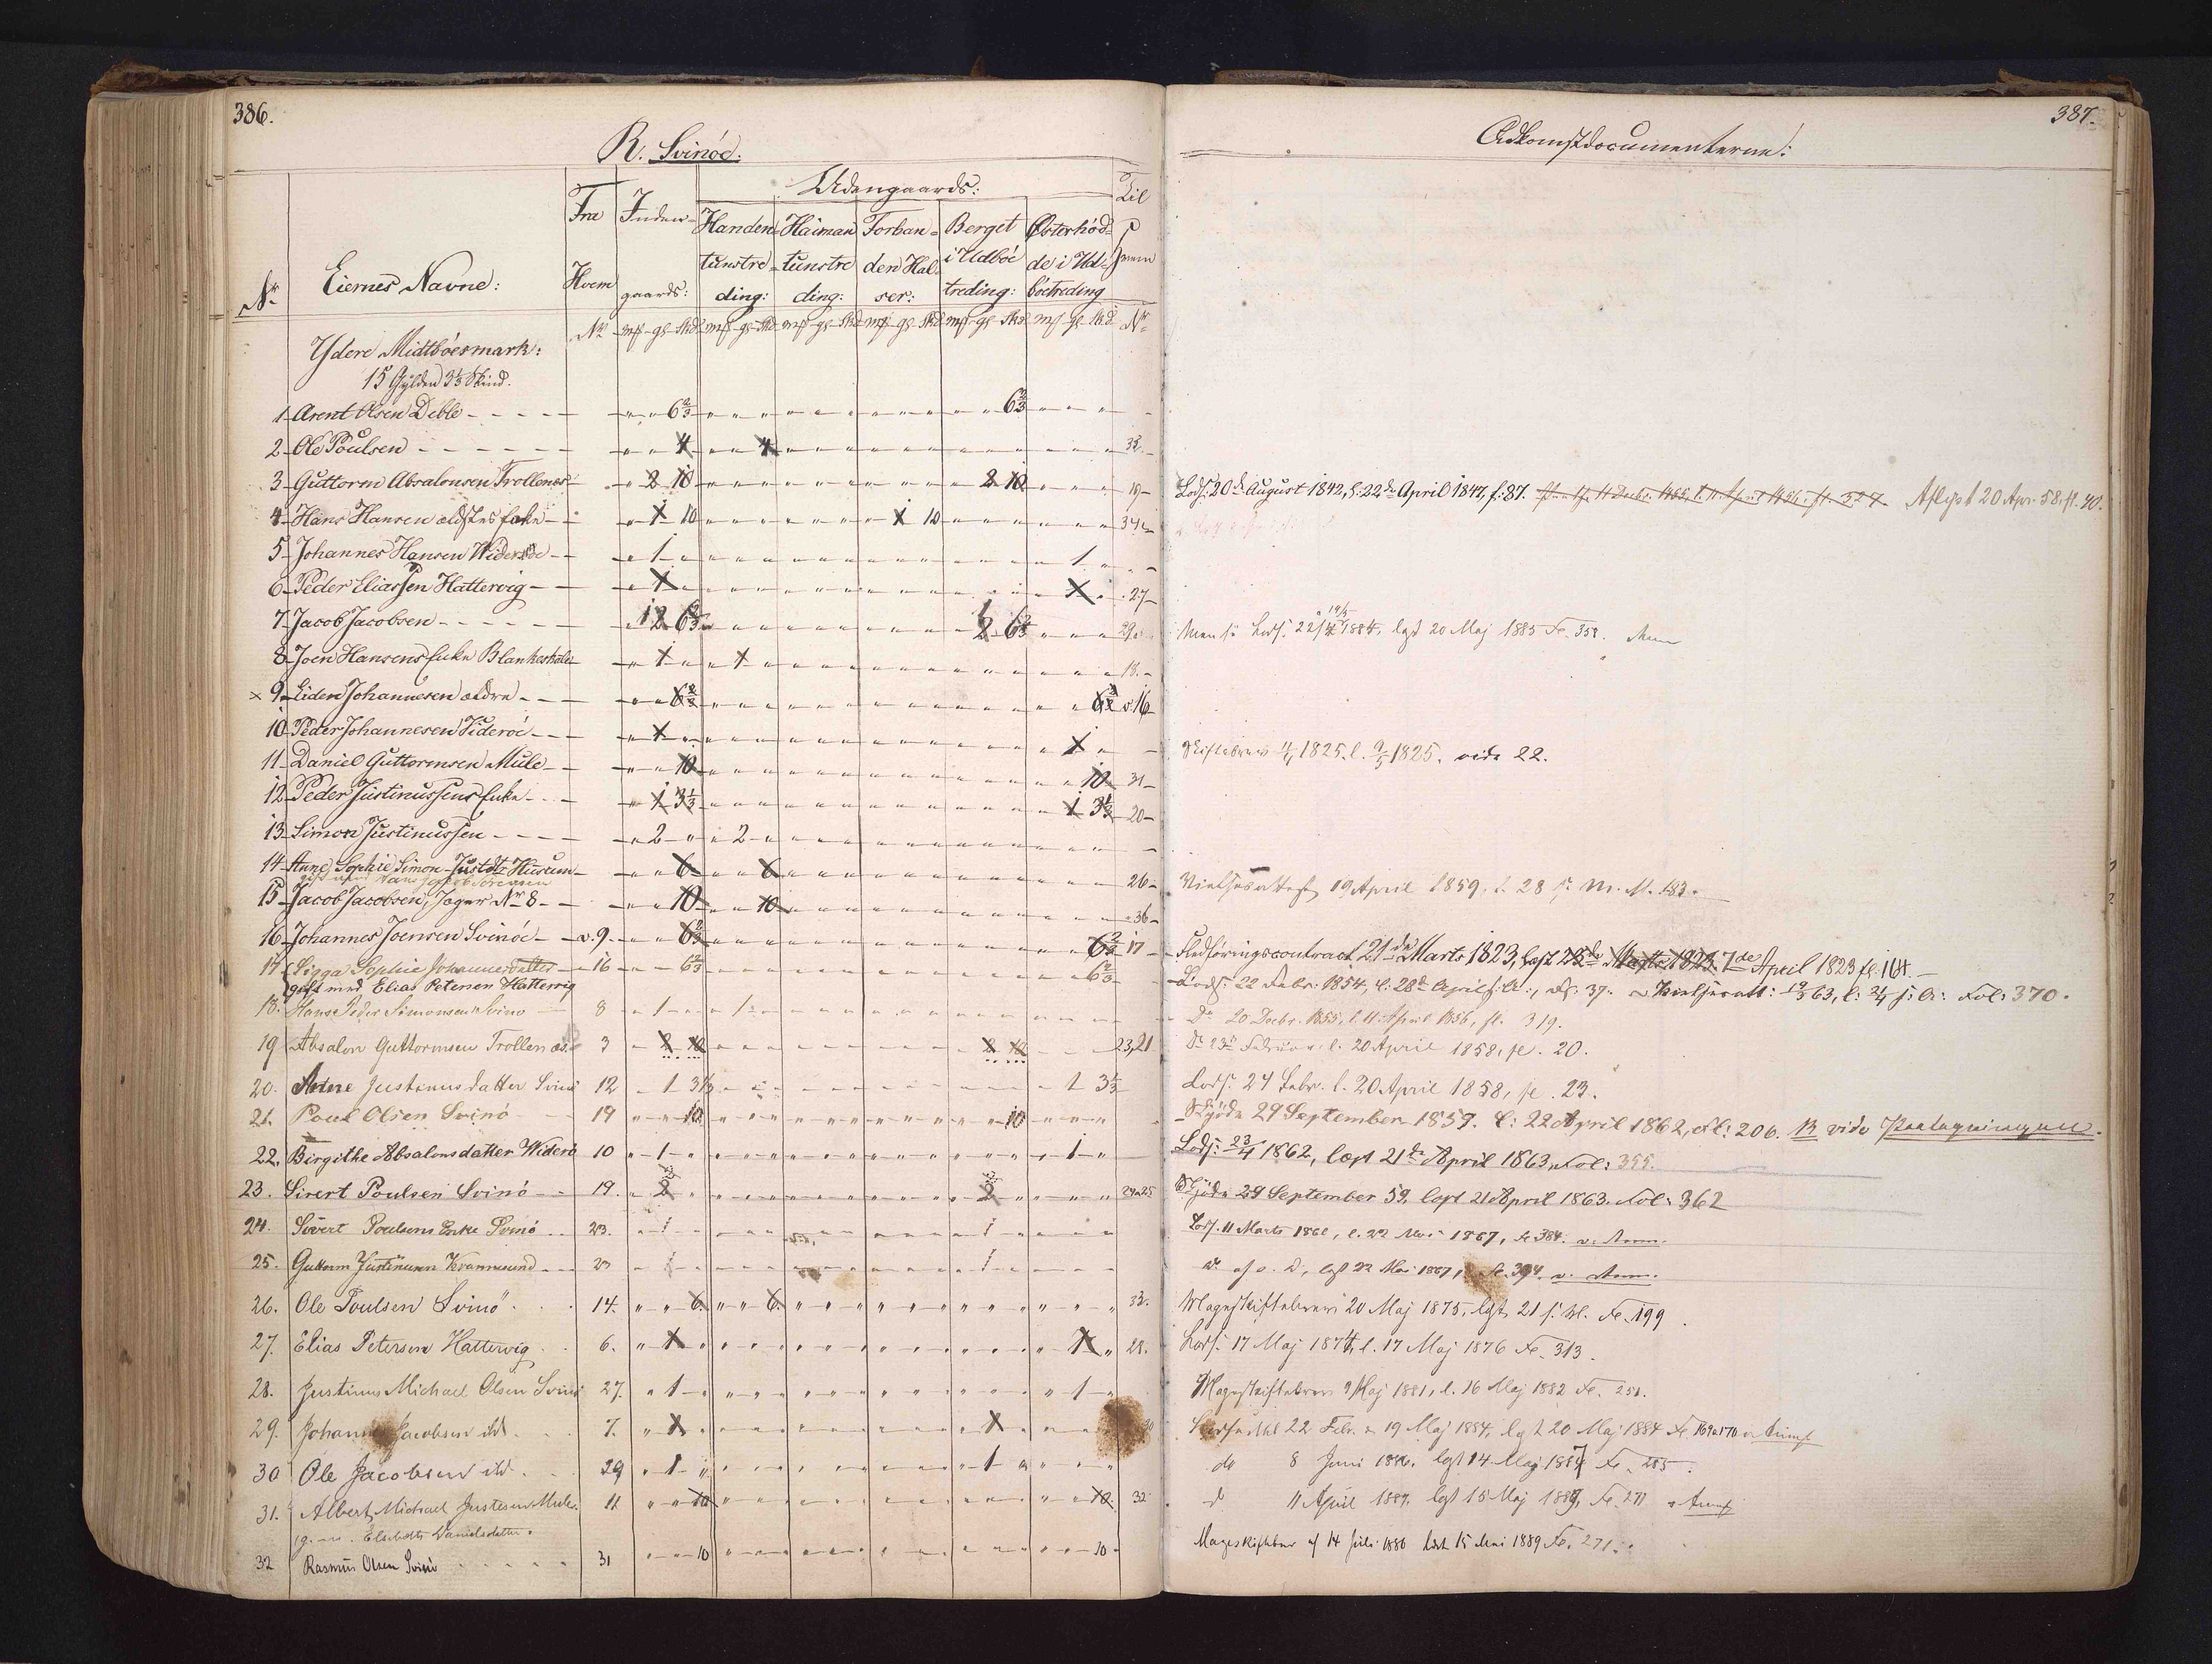 386.
R. Svinöe.
Udengaards:
Nr
Eiernes Navne:
Fra Hvem Nr
Inden-gaards:
Handen-tunstre-ding:
Haiman tunstre ding:
Torban-den Hal-ser:
Berget i Udböe treding:
Österhöd-de i Ud-böetreding
Til Hvem Nr
Ydere Midtböesmark:
15 Gylden 3 1/3 Skind.
1 Arent Olsen Deble - - - - " " 6 2/3 6 2/3
2 Ole Poulsen - - - - - - 4 4 32
3 Guttorm Absalonsen Trollenes 2 10 2 10 19
4 Hans Hansen ældstes Enke 1 10 1 10 34
5 Johannes Hansen Wideröe - - 1 1
6 Peder Eliassen Hattervig - - 1 1 27
7 Jacob Jacobsen - - - - - 12 6 2/3 2 6 2/3 29
8 Joen Hansens Enke Blankeskale 1 1 18
× 9 Eiden Johannesen ældre - - - 6 2/3 6 2/3 v. 16
10 Peder Johannesen Videröe - - - 1 1
11 Daniel Guttormsen Mule - - 10 10 31
12 Peder Justinussens Enke - - - 1 3 1/3 1 3 1/3 20
13 Simon Justinussen - - - - 2 2
14 Anne Sophie Simon Justdtr Husum 6 6 26
gift med Hans Jacob Sörensen
15 Jacob Jacobsen, Jogvr Nr 8 - - 10 10 36
16 Johannes Joensen Svinöe - v. 9 6 2/3 6 2/3 17
17 Sigga Sophie Johannesdatter 16 6 2/3 6 2/3
gift med Elias Petersen Hattervig
18. Hans Peder Simonsen Svinö 8 1 1
19 Absalon Guttormsen Trollenæs 3 2 10 2 10 23, 21
20. Anne Justinusdatter Svinö 12 1 3 1/3 1 3 1/3
21. Poul Olsen Svinö 19 10 10
22. Birgithe Absalonsdatter Widerö 10 1 1
23. Sivert Poulsen Svinö 19. 2 2 24 a 25
24. Sivert Poulsens Enke Svinö 23. 1 1
25. Guttorm Justinusen Kvannesund 23 1 1
26. Ole Poulsen Svinö 14. 6. 6. 33.
27. Elias Petersen Hattervig 6. 1 1 28.
28. Justinus Michael Olsen Svinö 27. 1 1
29. Johannes Jacobsen ibd. 7. 1 1 30
30 Ole Jacobsen ibd. 29 1 1
31. Albert Michael Justesen Mule. 11. 10 10 32
g. m. Elsebeth Danielsdatter.
32 Rasmus Olsen Svinö 31 10 10
387.
Adkomstdocumenterne:
Lods: 20de August 1842, l: 22de April 1847, f: 87. Aflyst 20 Apr. 58. fl. 40.
Lods: 22/2 1884, lgst 20 Maj 1885 Fo. 358. Anm
Skiftebrev 4/4 1825. l. 9/5 1825. vide 22.
Vielsesattest 19 April 1859. l. 28 s. M. 183.
Fledföringscontract 21de Marts 1823, læst 7de April 1823 fl. 164. -
Lods: 22 Febr: 1854, l: 28de April s: A:, fl: 37. Vielsesatt: 19/3 63, l: 21/4 s: A: Fol: 370.
Do 20 Decbr. 1855, l. 11 April 1856, fl. 319.
Do 23de Februar l. 20 April 1858, fl. 20.
Lods: 24 Febr. l. 20 April 1858, fl. 23.
Skjöde 29 September 1857. l: 22 April 1862, fl: 206. vide
Lods: 23/4 1862, læst 21de April 1863, Fol: 355.
Skjöde 29 September 59, læst 21 April 1863. Fol: 362
Lods. 11 Marts 1862, l. 22 Mai 1867, Fo 384. v. Anm.
Do af s. D., lgst 22 Mai 1867, Fo. 394. v. Anm.
Mageskiftebrev 20 Maj 1875, lgst. 21 s. M. Fo. 199
Lods. 17 Maj 1874, l. 17 Maj 1876 Fo. 313.
Mageskiftebrev 9 Maj 1881, l. 16 Maj 1882 Fo. 251.
22 Febr. 19 Maj 1884, lgst 20 Maj 1884 Fo 169 a 170 v. Anm
do 8 Juni 1886. lgst 14 Maj 1887 Fo. 285.
d 11 April 1889. lgst 15 Maj 1889, Fo. 271 v. Anm
Mageskiftebr af 14 Juli 1880 læst 15 Mai 1889 Fo. 271.